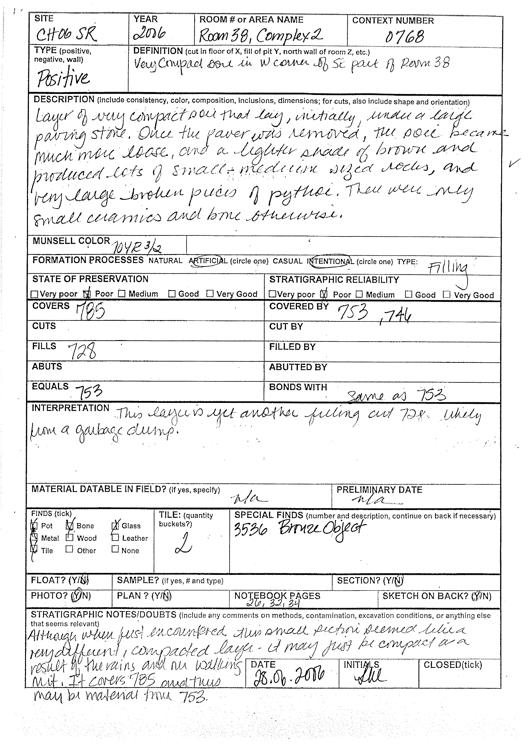 SITE YEAR ROOM # OR AREA NAME CONTEXT NUMBER
CH06 SR 2006 Room 38, Complex 2 0768
TYPE (positive, negative, wall) DEFINITION (cut in floor of X, fill of pit Y, north wall of room Z, etc.)
Positive Very Compact soil in W corner of SE part of Room 38
DESCRIPTION (include consistency, color, composition, inclusions, dimensions; for cuts, also include shape and orientation)
Layer of very compact soil that lay, initially, under a large
paving stone. Once the paver was removed, the soil became
much more loose, and a lighter shade of brown and
produced lots of small-medium sized rocks, and
very large broken pieces of pythoi. There were only
small ceramics and bone otherwise.
MUNSELL COLOR 10YR 3/2
FORMATION PROCESSES NATURAL ARTIFICIAL (circle one) CASUAL INTENTIONAL (circle one) TYPE: Filling
STATE OF PRESERVATION STRATIGRAPHIC RELIABILITY
Very poor Poor Medium Good Very Good Very poor Poor Medium Good Very Good
COVERS 785 COVERED BY 753, 746
CUTS CUT BY
FILLS 728 FILLED BY
ABUTS ABUTTED BY
EQUALS 753 BONDS WITH same as 753
INTERPRETATION This layer is yet another filling cut 728. likely
from a garbage dump.
MATERIAL DATABLE IN FIELD? (if yes, specify) n/a PRELIMINARY DATE n/a
FINDS (tick) TILE: (quantity buckets?) SPECIAL FINDS (number and description, continue on back if necessary)
Pot Bone Glass 2 3536 Bronze Object
Metal Wood Leather
Tile Other None
FLOAT? (Y/N) SAMPLE? (if yes, # and type) SECTION? (Y/N)
PHOTO? (Y/N) PLAN? (Y/N) NOTEBOOK PAGES 26, 32, 34 SKETCH ON BACK? (Y/N)
STRATIGRAPHIC NOTES/DOUBTS (include any comments on methods, contamination, excavation conditions, or anything else that seems relevant)
Although when first encountered this small section seemed like a
very different, compacted layer - it may just be compact as a
result of the rains and our walking
on it. It covers 785 and thus
may be material from 753.
DATE 28.06.2006 INITIALS CLOSED(tick)